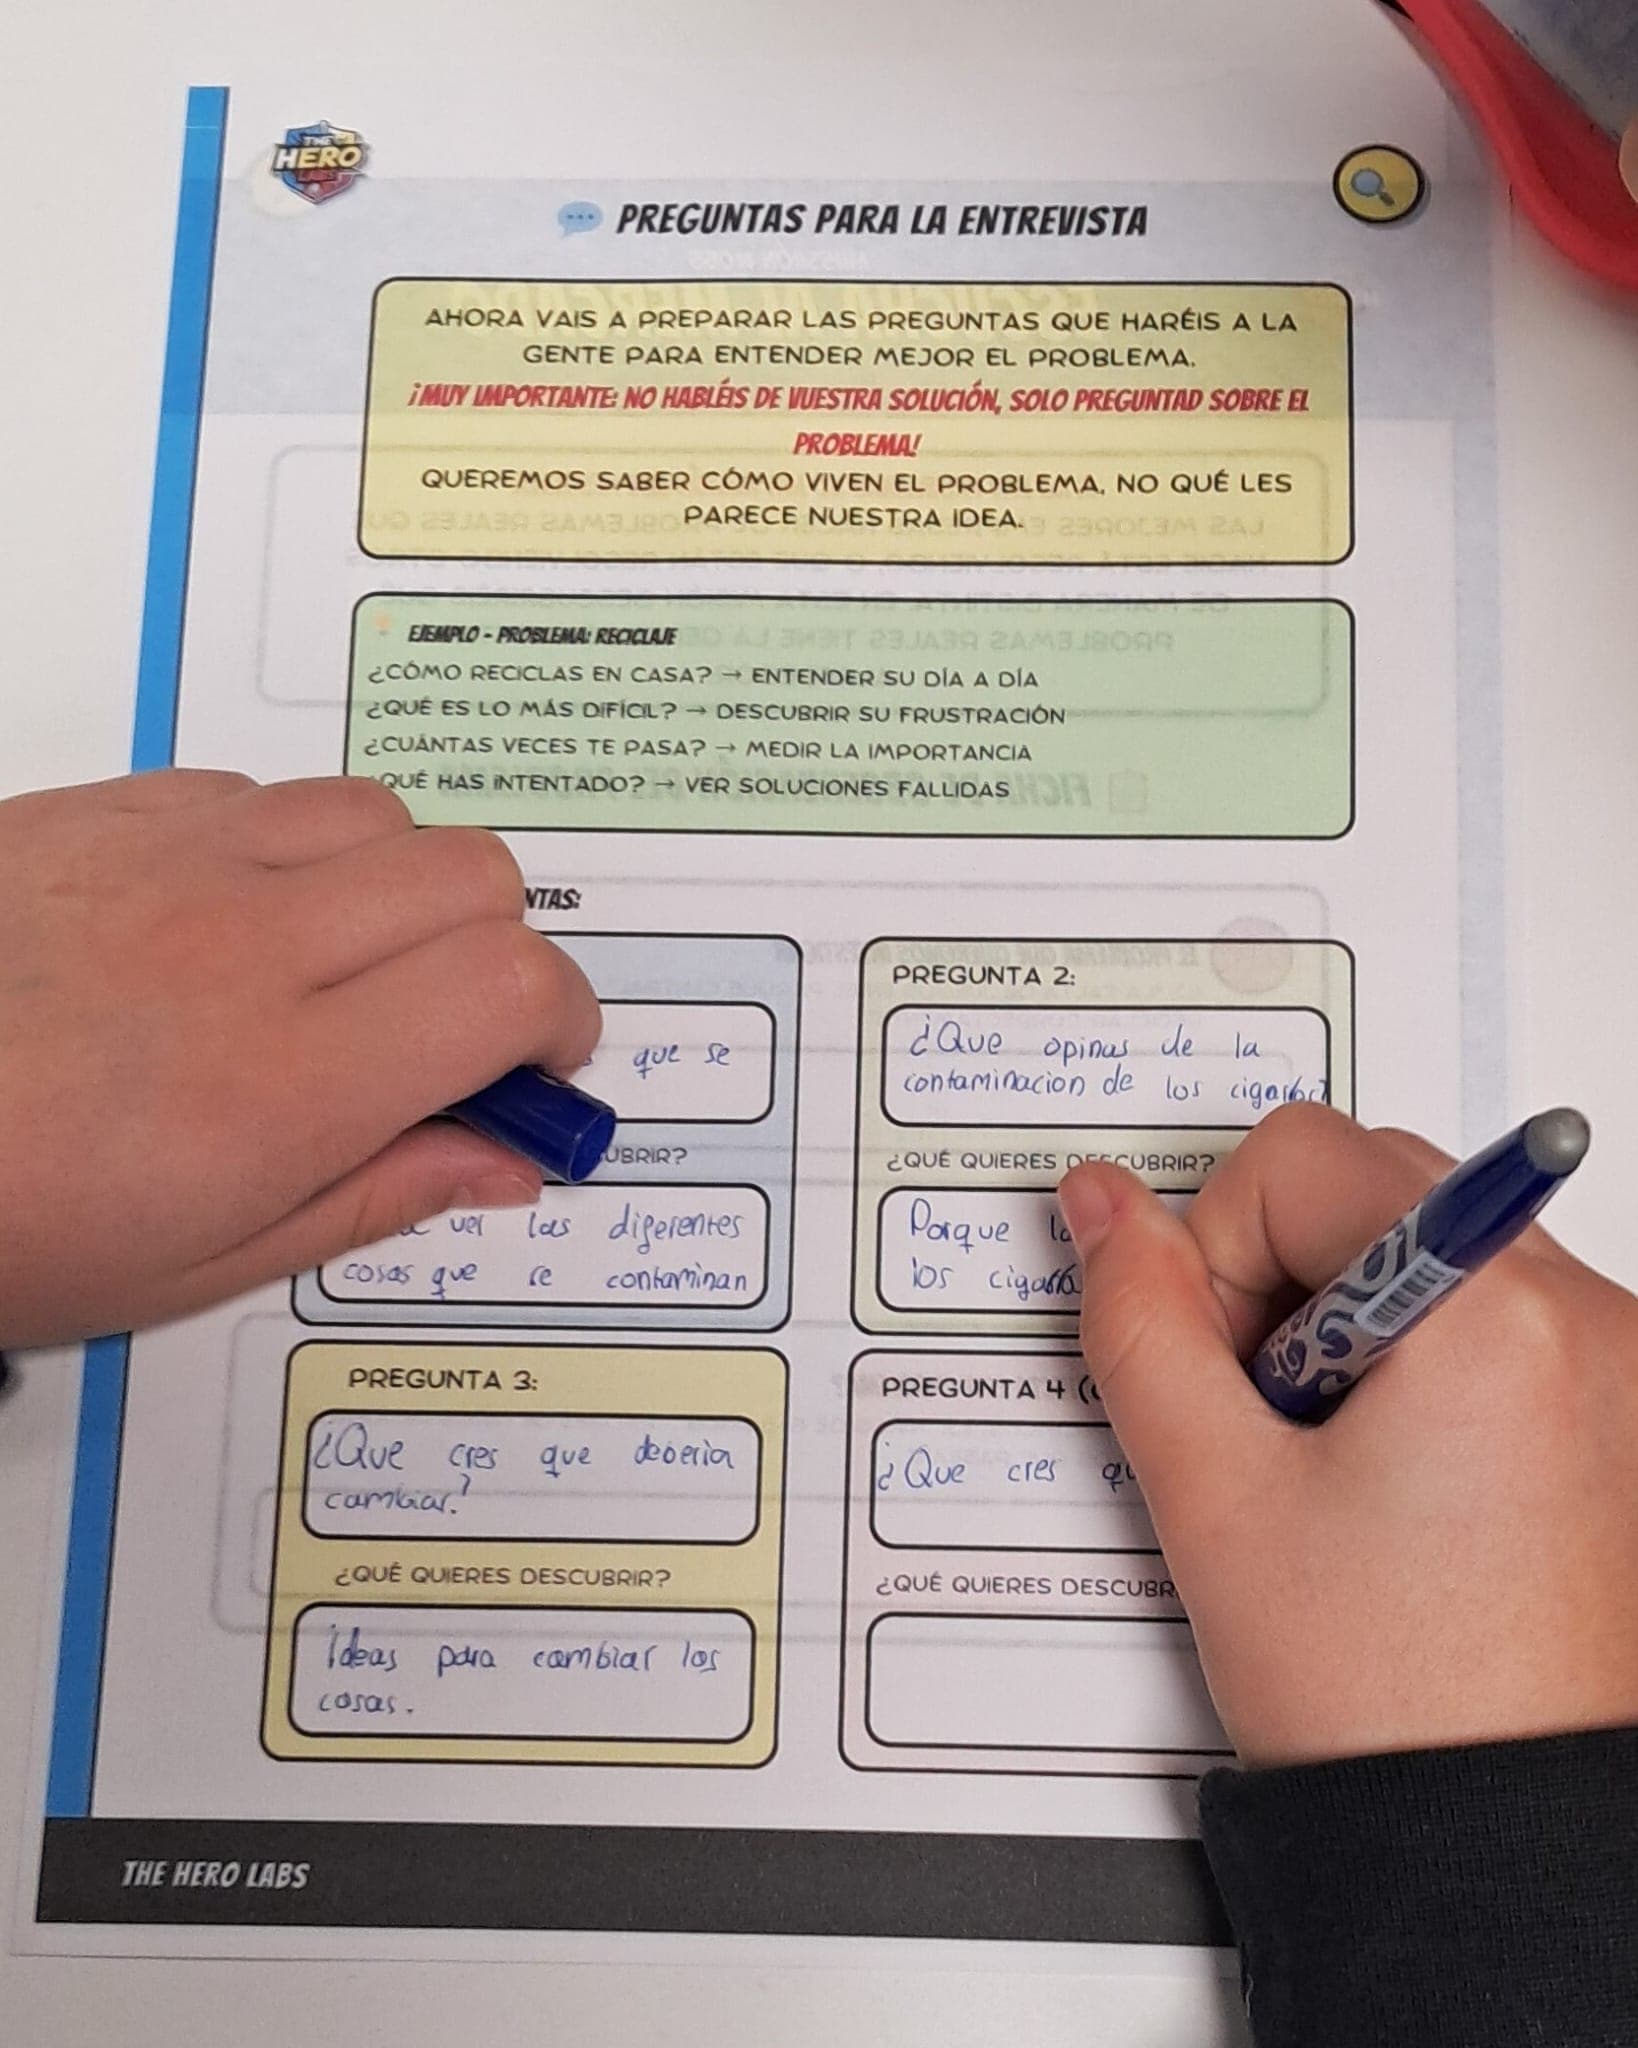 THE
HERO
LABS
PREGUNTAS PARA LA ENTREVISTA
AHORA VAIS A PREPARAR LAS PREGUNTAS QUE HARÉIS A LA
GENTE PARA ENTENDER MEJOR EL PROBLEMA.
¡MUY IMPORTANTE: NO HABLÉIS DE VUESTRA SOLUCIÓN, SOLO PREGUNTAD SOBRE EL
PROBLEMA!
QUEREMOS SABER CÓMO VIVEN EL PROBLEMA, NO QUÉ LES
PARECE NUESTRA IDEA.
EJEMPLO - PROBLEMA: RECICLAJE
¿CÓMO RECICLAS EN CASA? → ENTENDER SU DÍA A DÍA
¿QUÉ ES LO MÁS DIFÍCIL? → DESCUBRIR SU FRUSTRACIÓN
¿CUÁNTAS VECES TE PASA? → MEDIR LA IMPORTANCIA
QUÉ HAS INTENTADO? → VER SOLUCIONES FALLIDAS
NTAS:
que se
UBRIR?
ver las diferentes
cosas que se contaminan
PREGUNTA 2:
¿Que opinas de la
contaminacion de los
¿QUÉ QUIERES DESCUBRIR?
Porque
los
PREGUNTA 3:
¿Que cres que deberia
cambiar?
¿QUÉ QUIERES DESCUBRIR?
Ideas para cambiar los
cosas.
PREGUNTA 4
¿Que cres
¿QUÉ QUIERES DESCUBR
THE HERO LABS